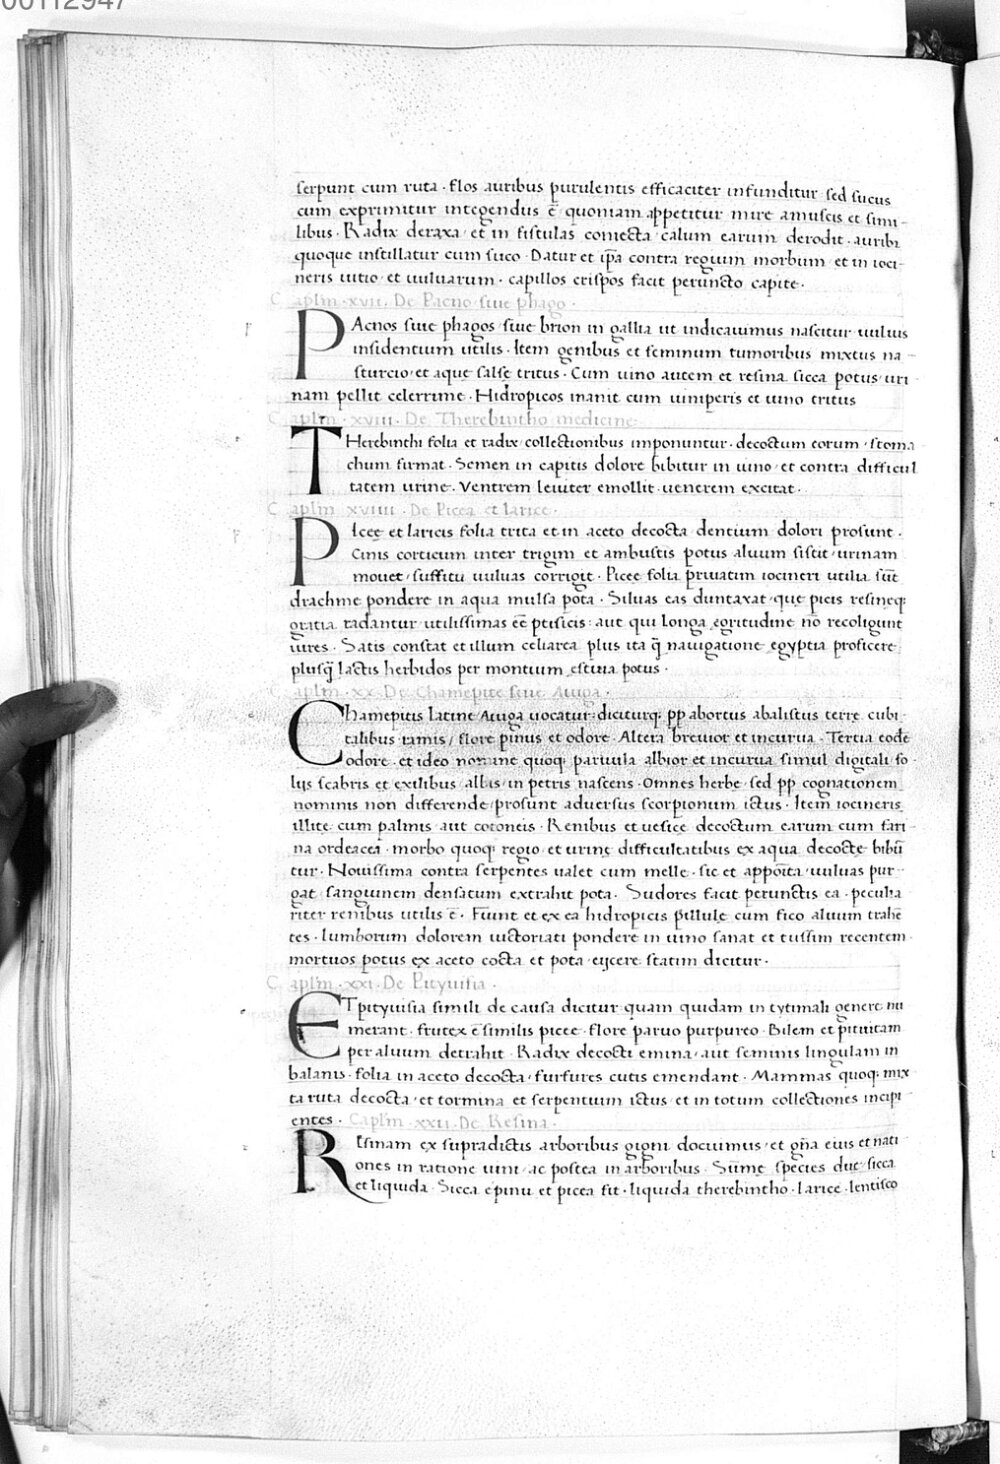 00112947
serpunt cum ruta · flos auribus purulentis efficaciter infunditur sed sucus
cum exprimitur integendus ē · quoniam appetitur mire a muscis et simi-
libus · Radix derasa · et in fistulas coniecta · calum earum derodit · auribꝫ
quoque instillatur cum suco · Datur et ip̄a contra regium morbum et in ioci-
neris uitio et uuluarum · capillos crispos facit peruncto capite ·
Caplm̄ · xvii · De Pacno siue phago ·
PAcnos siue phagos siue brion in gallia ut indicauimus nascitur uuluis
insidentium utilis · Item genibus et feminum tumoribus mixtus na-
sturcio et aque salsę tritus · Cum uino autem et resina sicca potus uri
nam pellit celerrime · Hidropicos inanit cum iuniperis et uino tritus
Caplm̄ xviii · De Therebintho medicine ·
THerebinthi folia et radix collectionibus imponuntur · decoctum eorum stoma
chum firmat · Semen in capitis dolore bibitur in uino · et contra difficul
tatem urine · Ventrem leuiter emollit · uenerem excitat ·
Caplm̄ xviiii · De Picea et larice ·
PIceę et laricis folia trita et in aceto decocta dentium dolori prosunt ·
Cinis corticum inter trigini et ambustis potus aluum sistit urinam
mouet suffitu uuluas corrigit · Piceę folia priuatim iocineri utilia sūt
drachme pondere in aqua mulsa pota · Siluas eas duntaxat que picis resineq;
gratia radantur utilissimas eē ptisicis · aut qui longa egritudine nō recoligunt
uires · Satis constat et illum celiarea plus ita q̄ nauigatione egyptia proficere
plusq̄ lactis herbidos per montium estiua potus ·
Caplm̄ · xx · De Chamepite siue Auiga ·
Chamepitis latine Auiga uocatur diciturq; pp abortus abalistus terre cubi-
talibus ramis / flore pinus et odore · Altera breuior et incurua · Tertia eodē
odore · et ideo nomine quoq; paruula albior et incurua simul digitali fo-
lijs scabris et exilibus albis in petris nascens · Omnes herbe sed pp cognationem
nominis non differende prosunt aduersus scorpionum ictus · Item iocineris
illite cum palmis aut cotoneis · Renibus et uesicę decoctum earum cum fari-
na ordeacea · morbo quoq; regio et urinę difficultatibus ex aqua decoctę bibū
tur · Nouissima contra serpentes ualet cum melle · sic et appoīta uuluas pur-
gat sanguinem densatum extrahit pota · Sudores facit perunctis ea · peculia
riter renibus utilis ē · Fiunt et ex ea hidropicis pillule cum fico aluum trahē
tes · lumborum dolorem uictoriati pondere in uino sanat et tussim recentem ·
mortuos potus ex aceto cocta et pota eijcere statim dicitur ·
Caplm̄ · xxi · De Pityuisia ·
ETpityuisia simili de causa dicitur quam quidam in tytimali genere nu
merant · frutex ē similis picee · flore paruo purpureo · Bilem et pituitam
per aluum detrahit · Radix decocti emina aut seminis lingulam in
balanis · folia in aceto decocta furfures cutis emendant · Mammas quoq; mix
ta ruta decocta et tormina et serpentium ictus et in totum collectiones incipi
entes · Caplm̄ · xxii · De Resina ·
REsinam ex supradictis arboribus gigni docuimus et gn̄a eius et nati
ones in ratione uini ac postea in arboribus · Sūme species due sicca
et liquida · Sicca e pinu et picea fit · liquida therebintho · larice · lentisco